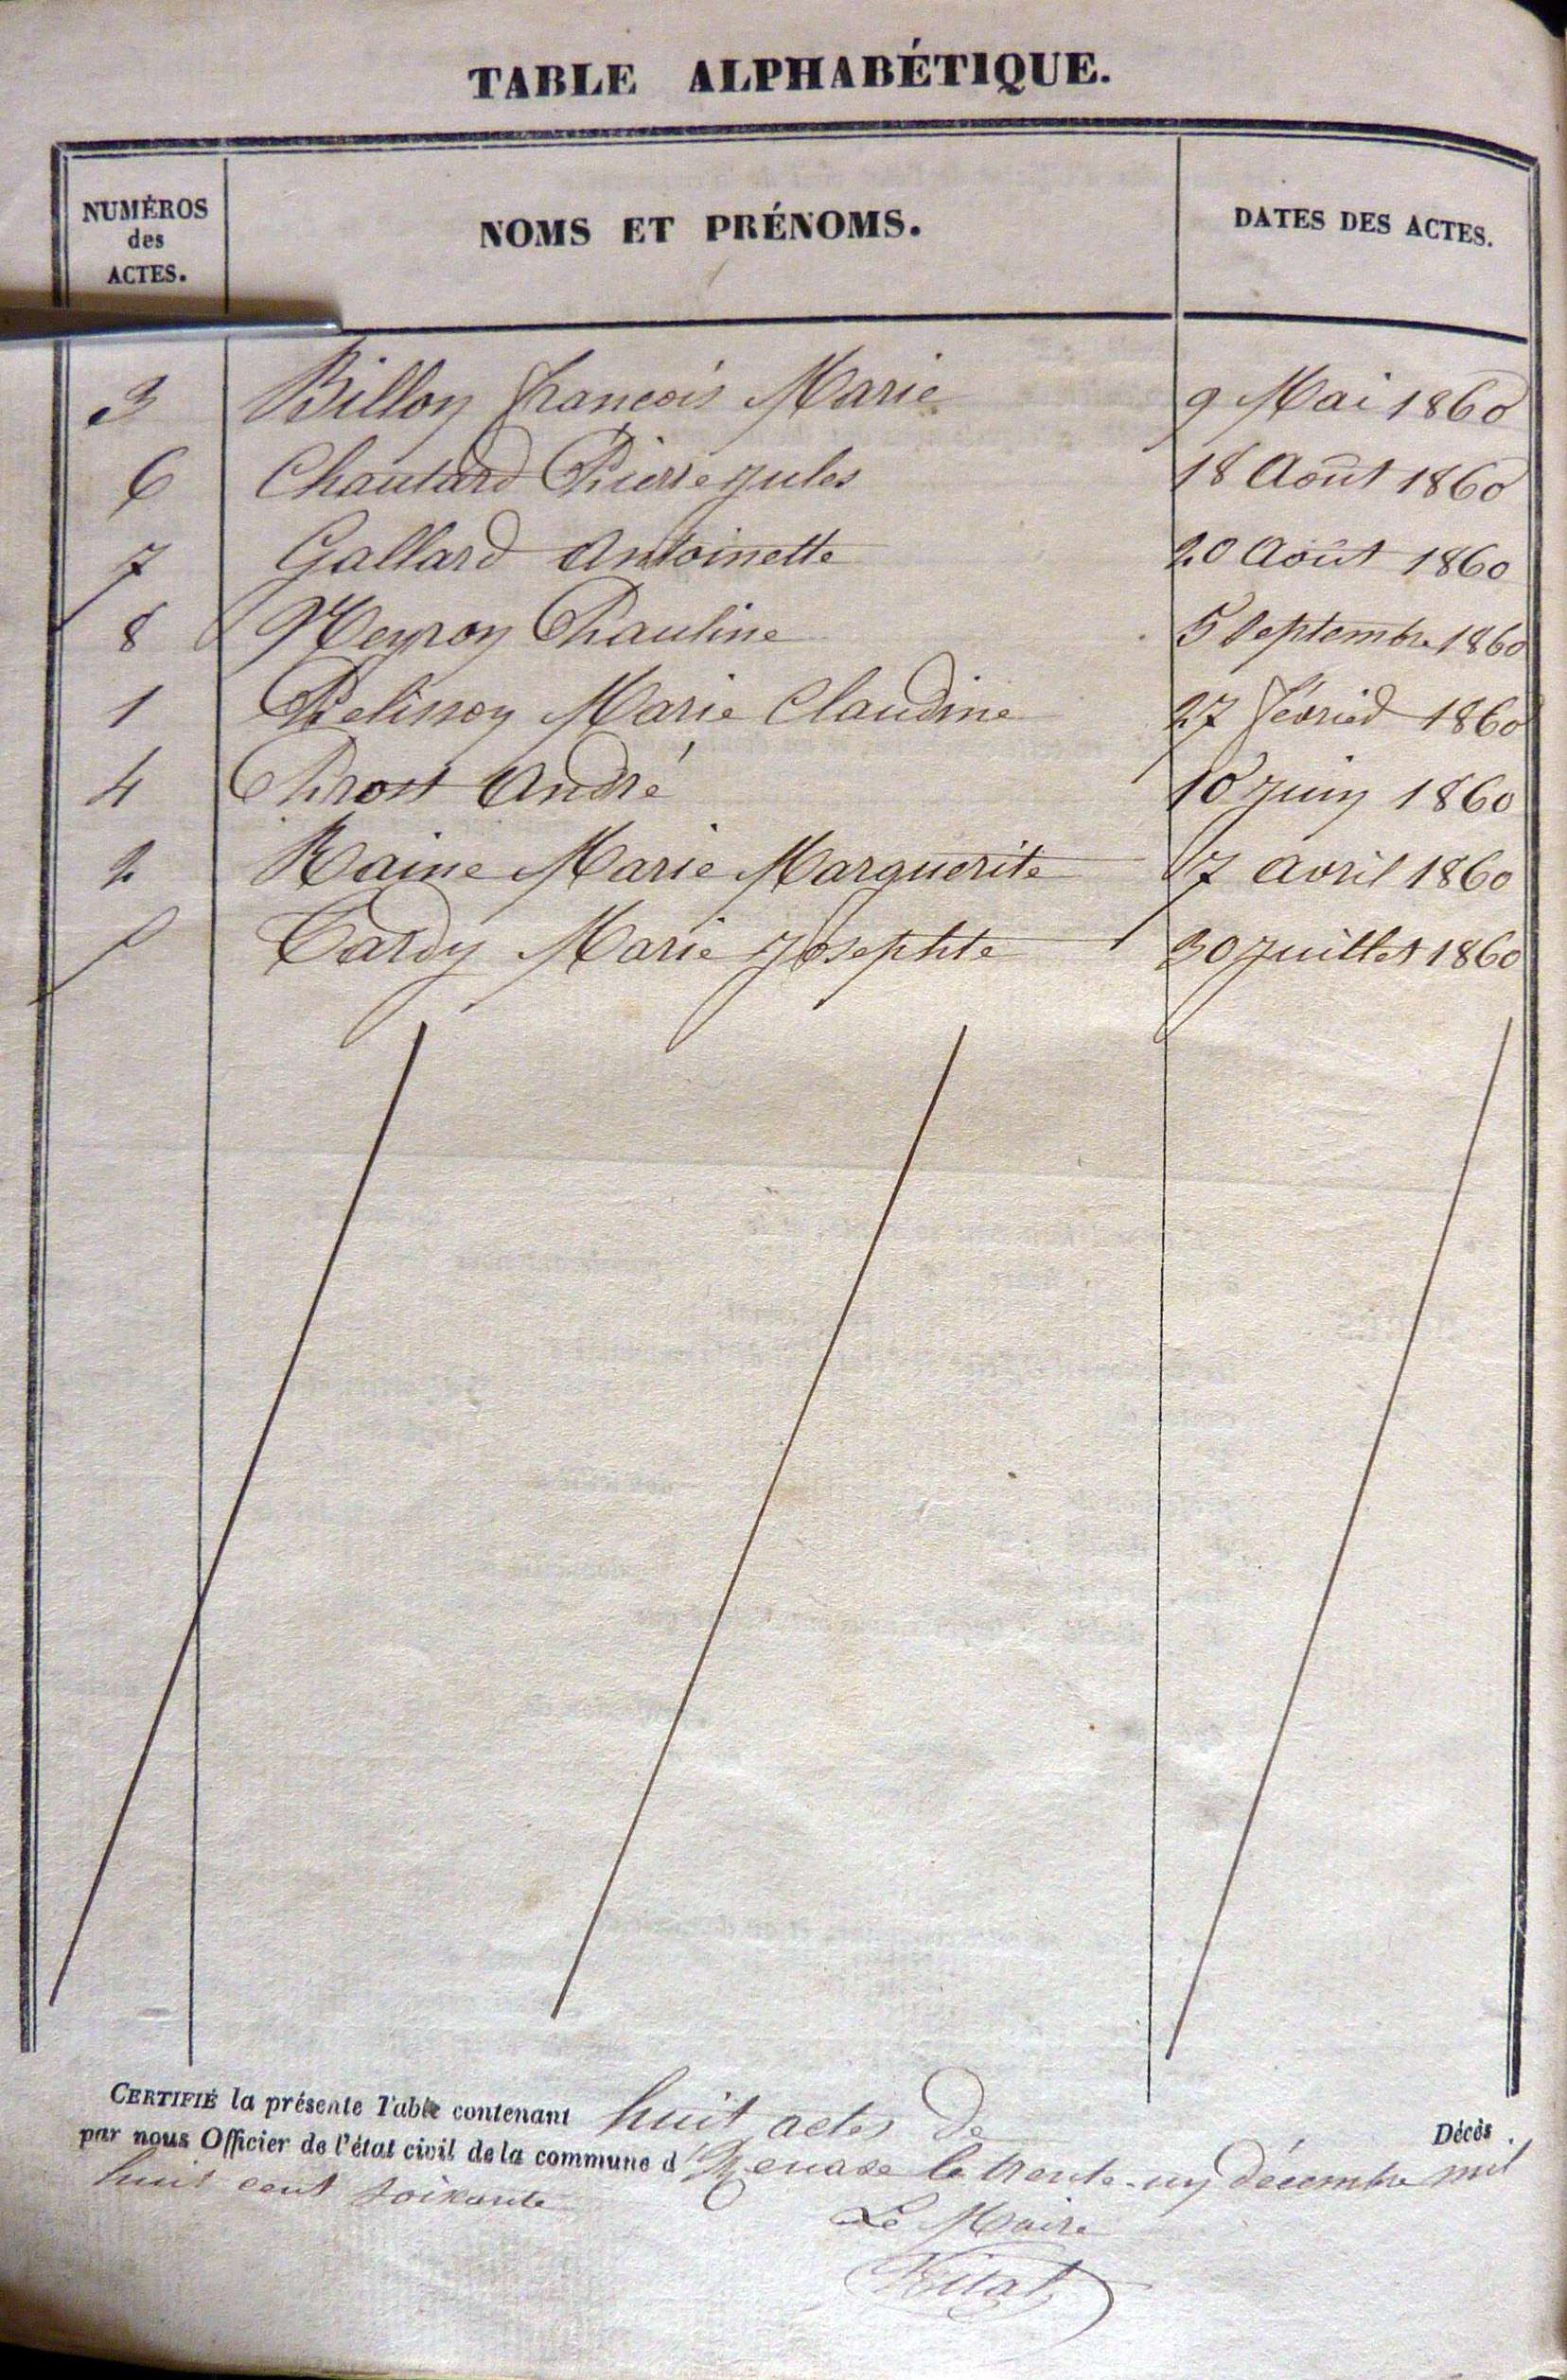 TABLE ALPHABÉTIQUE.
NUMÉROS des ACTES.
NOMS ET PRÉNOMS.
DATES DES ACTES.
3 Billon François Marie 9 Mai 1860
6 Chautard Pierre Jules 18 Août 1860
7 Gallard Antoinette 20 Août 1860
8 Neyron Pauline 5 Septembre 1860
1 Pelisson Marie Claudine 27 février 1860
4 Prost André 10 Juin 1860
2 Raine Marie Marguerite 17 Avril 1860
5 Tardy Marie Josephte 30 Juillet 1860
CERTIFIÉ la présente Table contenant huit actes de Décès
par nous Officier de l'état civil de la commune d le trente-un décembre mil
huit cent soixante
Le Maire